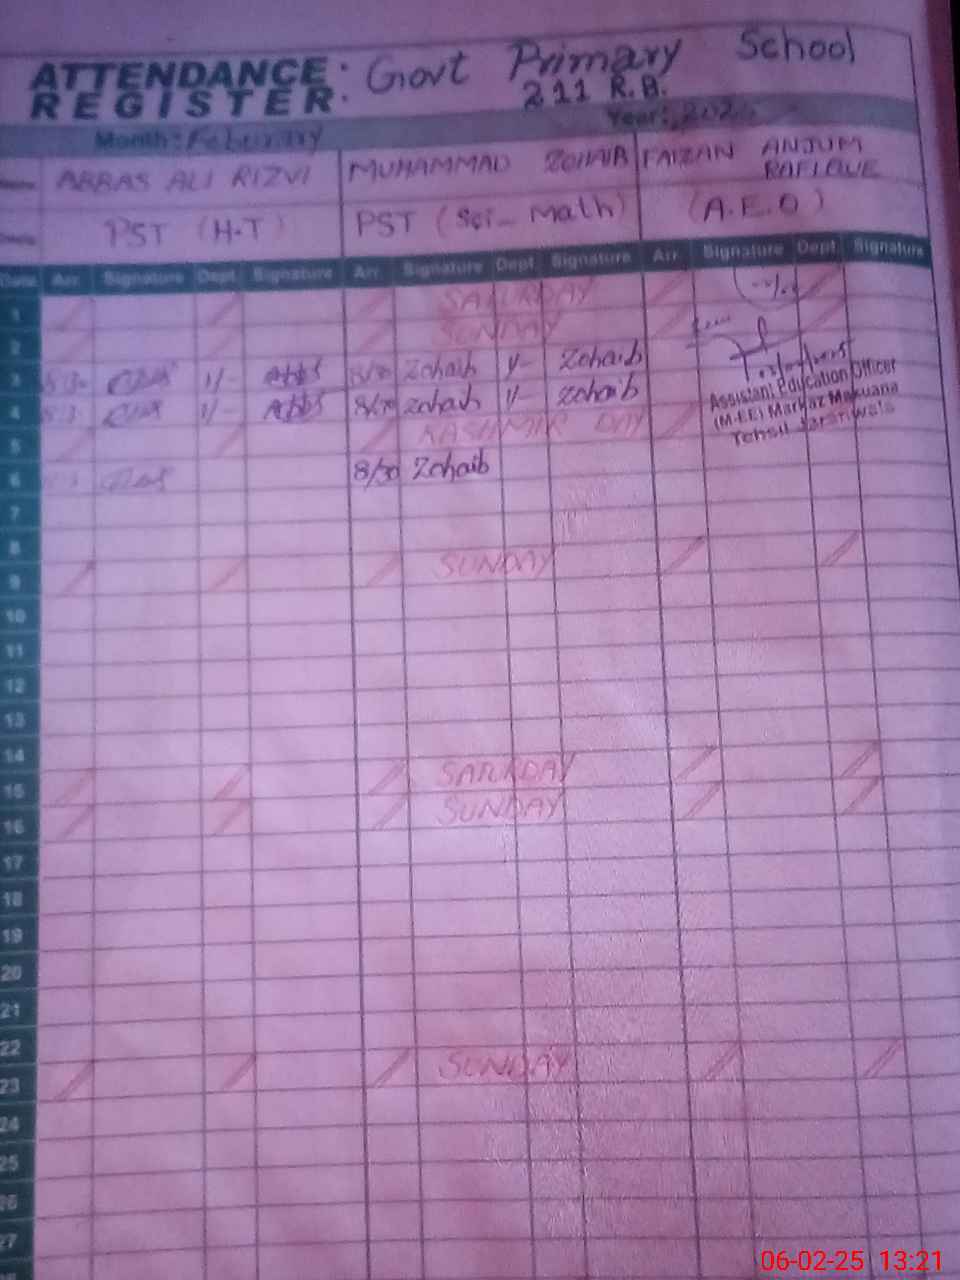 ATTENDANCE: Govt Primary School
REGISTER. 211 R.B.
Month: Feburary Year: 2025
Name ABBAS ALI RIZVI MUHAMMAD ZOHAIB FAIZAN ANJUM RAFIQUE
PST (H.T) PST (Sci_ Math) (A.E.O)
Date Arr. Signature Dept. Signature Arr. Signature Dept Signature Arr. Signature Dept Signature
1 SATURDAY
2 SUNDAY
3 1/- Abbs 8/30 Zohaib 1/- Zohaib
4 1/- Abbs 8/30 Zohaib 1/- Zohaib
Assistant Education Officer
(M-EE) Markaz Makuana
Tehsil Jaranwala
5 KASHMIR DAY
6 8/30 Zohaib
7
8
9 SUNDAY
10
11
12
13
14
15 SATURDAY
16 SUNDAY
17
18
19
20
21
22
23 SUNDAY
24
25
26
27
06-02-25 13:21